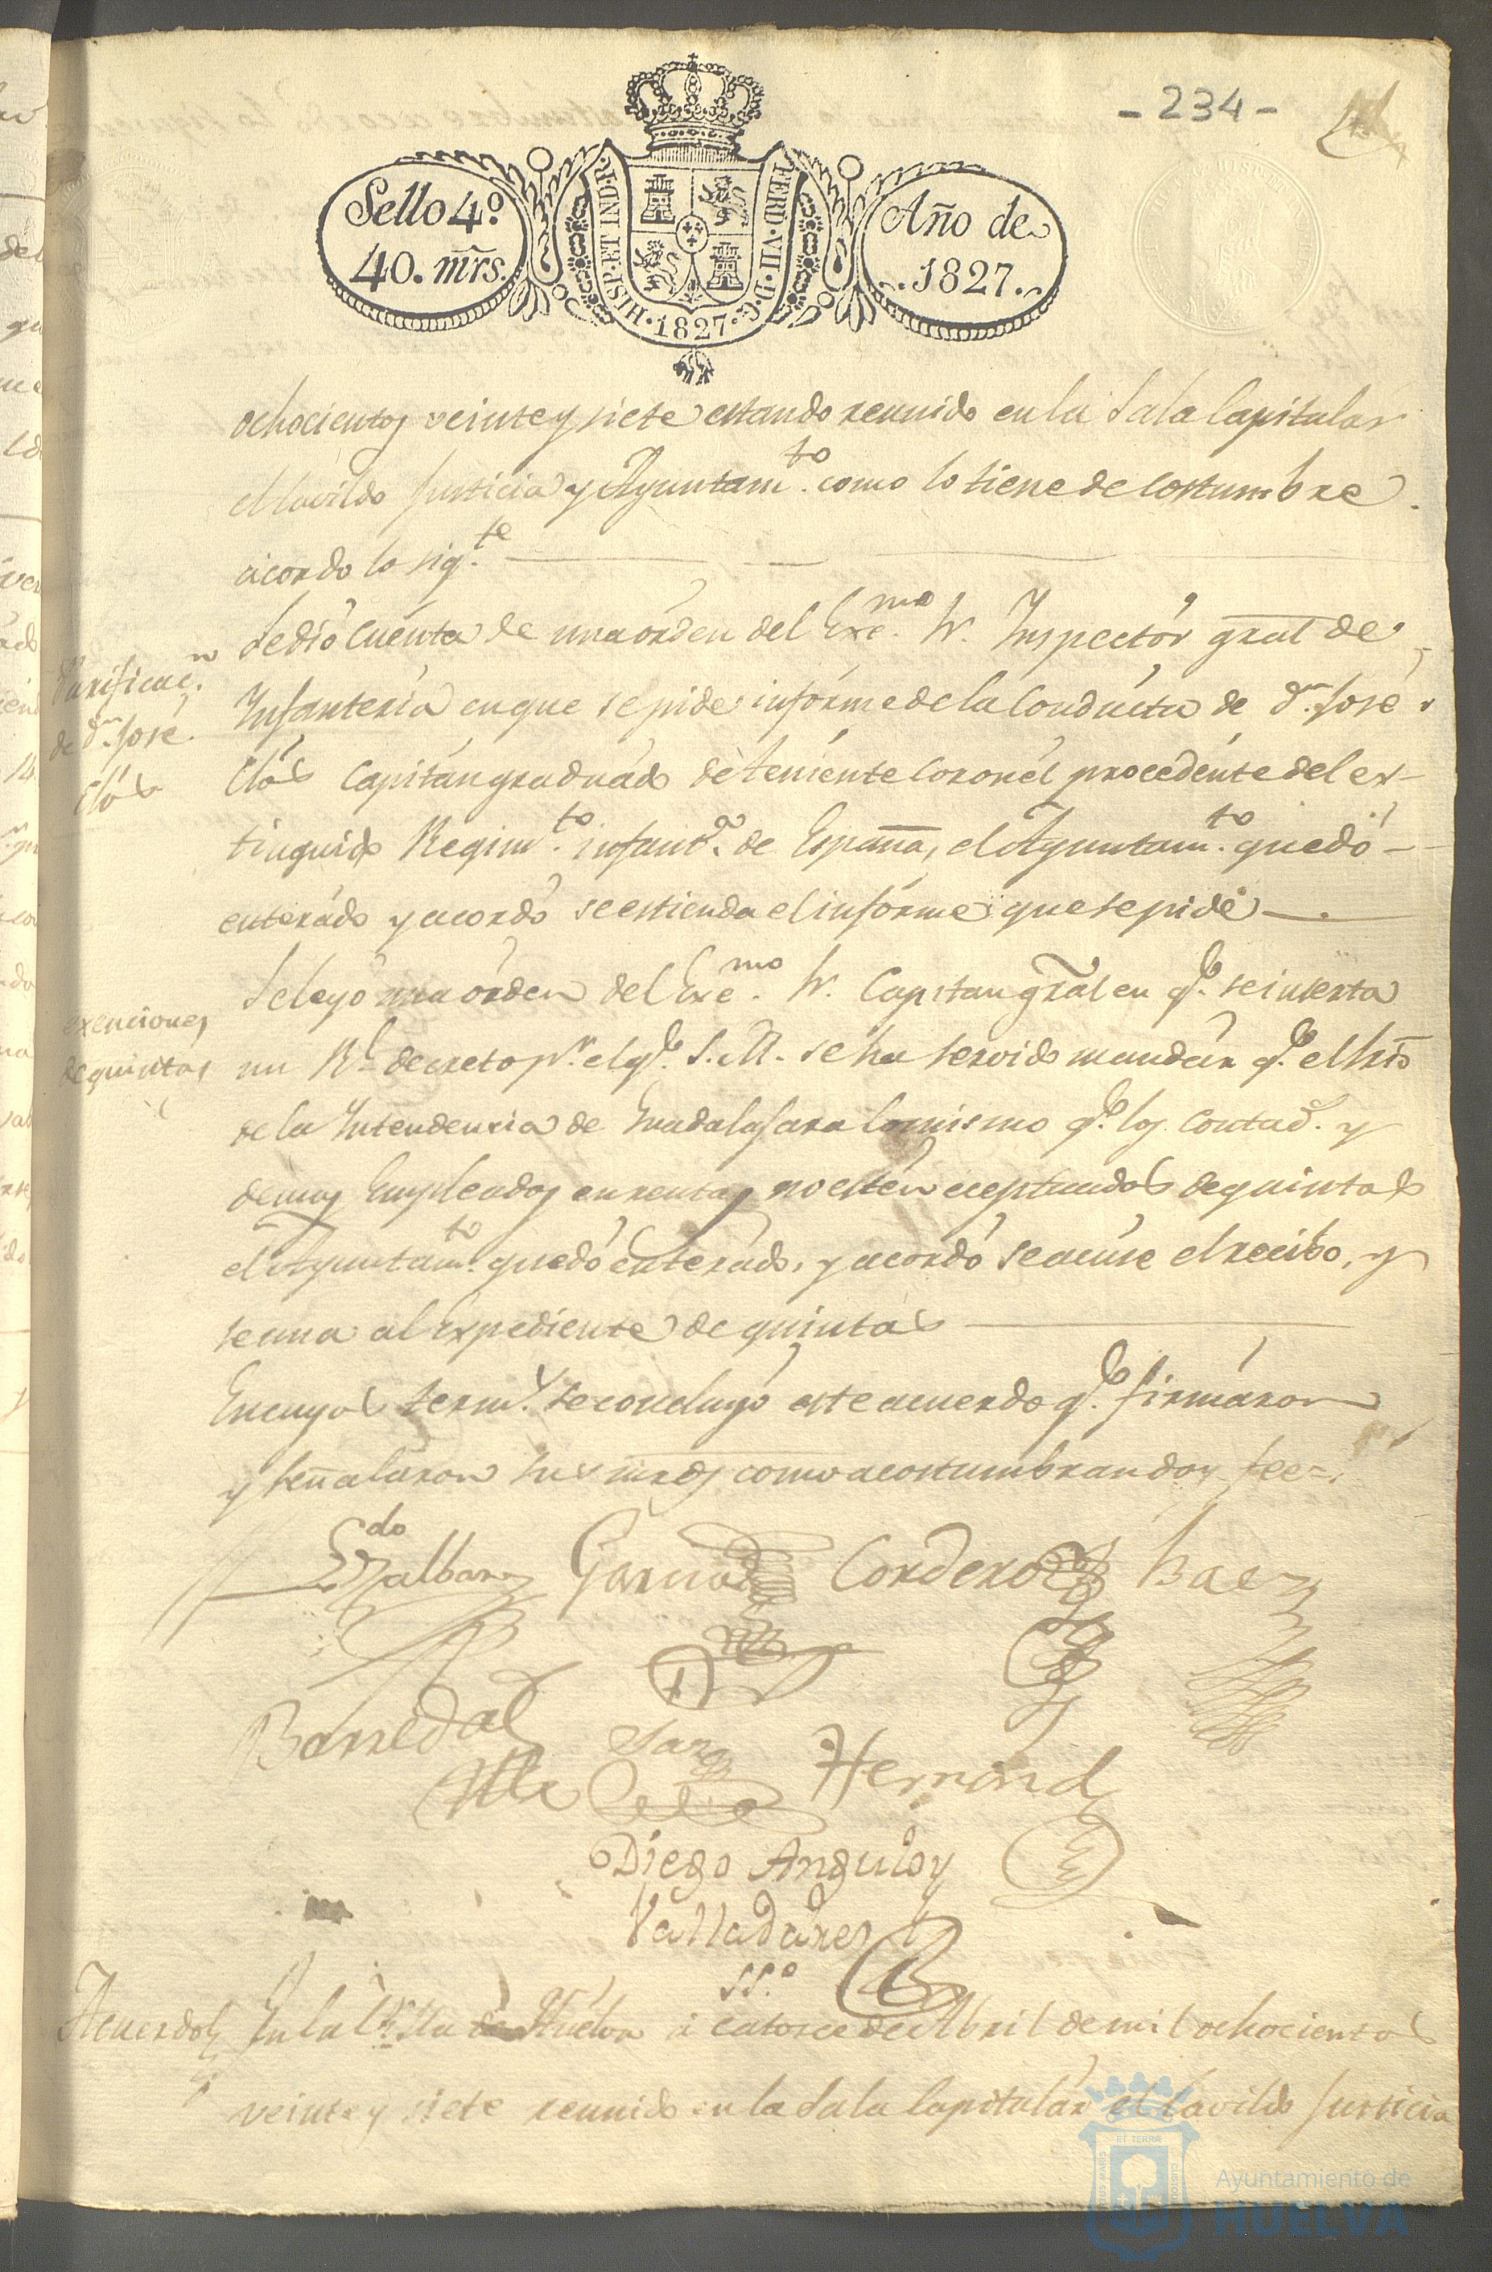 - 234 -
Sello 4º
40. mrs.
HISP. ET IND. R.
FERD. VII. D. G.
1827
Año de
1827.
ochocientos veinte y siete estando reunido en la Sala Capitular
el Cavildo Justicia y Ayuntam.to como lo tiene de costumbre
acordo lo sig.te
Purificac.n
de d.n José
Clós
Se dió cuenta de una orden del Exc.mo Sr. Inspectór gral de
Infanteria en que se pide infórme de la Condúcta de d.n José
Clós Capitán graduádo de teniénte Coronél procedénte del ex-
tinguido Regim.to infant.a de España, el Ayuntam.to quedó
enterádo y acordó se estienda el infórme que se pide
exenciones
de quintas
Se leyó una orden del Exc.mo Sr. Capitan gral en q.e se inserta
un R.l decreto p.r el q.e S. M. se ha servido mandár q.e el
de la Intendencia de Guadalajara lo mismo q.e los Contad.s y
demas Empleados en rentas no estén eceptuados de quintas
el Ayuntam.to quedó enterádo, y acordó se acuse el recibo, y
se una al expediente de quintas
En cuyos term.s se concluyó este acuerdo q.e firmáron
y señaláron sus mrds como acostumbran doy fee=
Garcia Cordero Baez
Barreda
Hernand
Diego Angulo y
Valladares
SS.º
Acuerdo En la Villa de Huelva á catorce de Abril de mil ochocientos
veinte y siete reunido en la Sala Capitulár el Cavildo Justicia
Ayuntamiento de
HUELVA